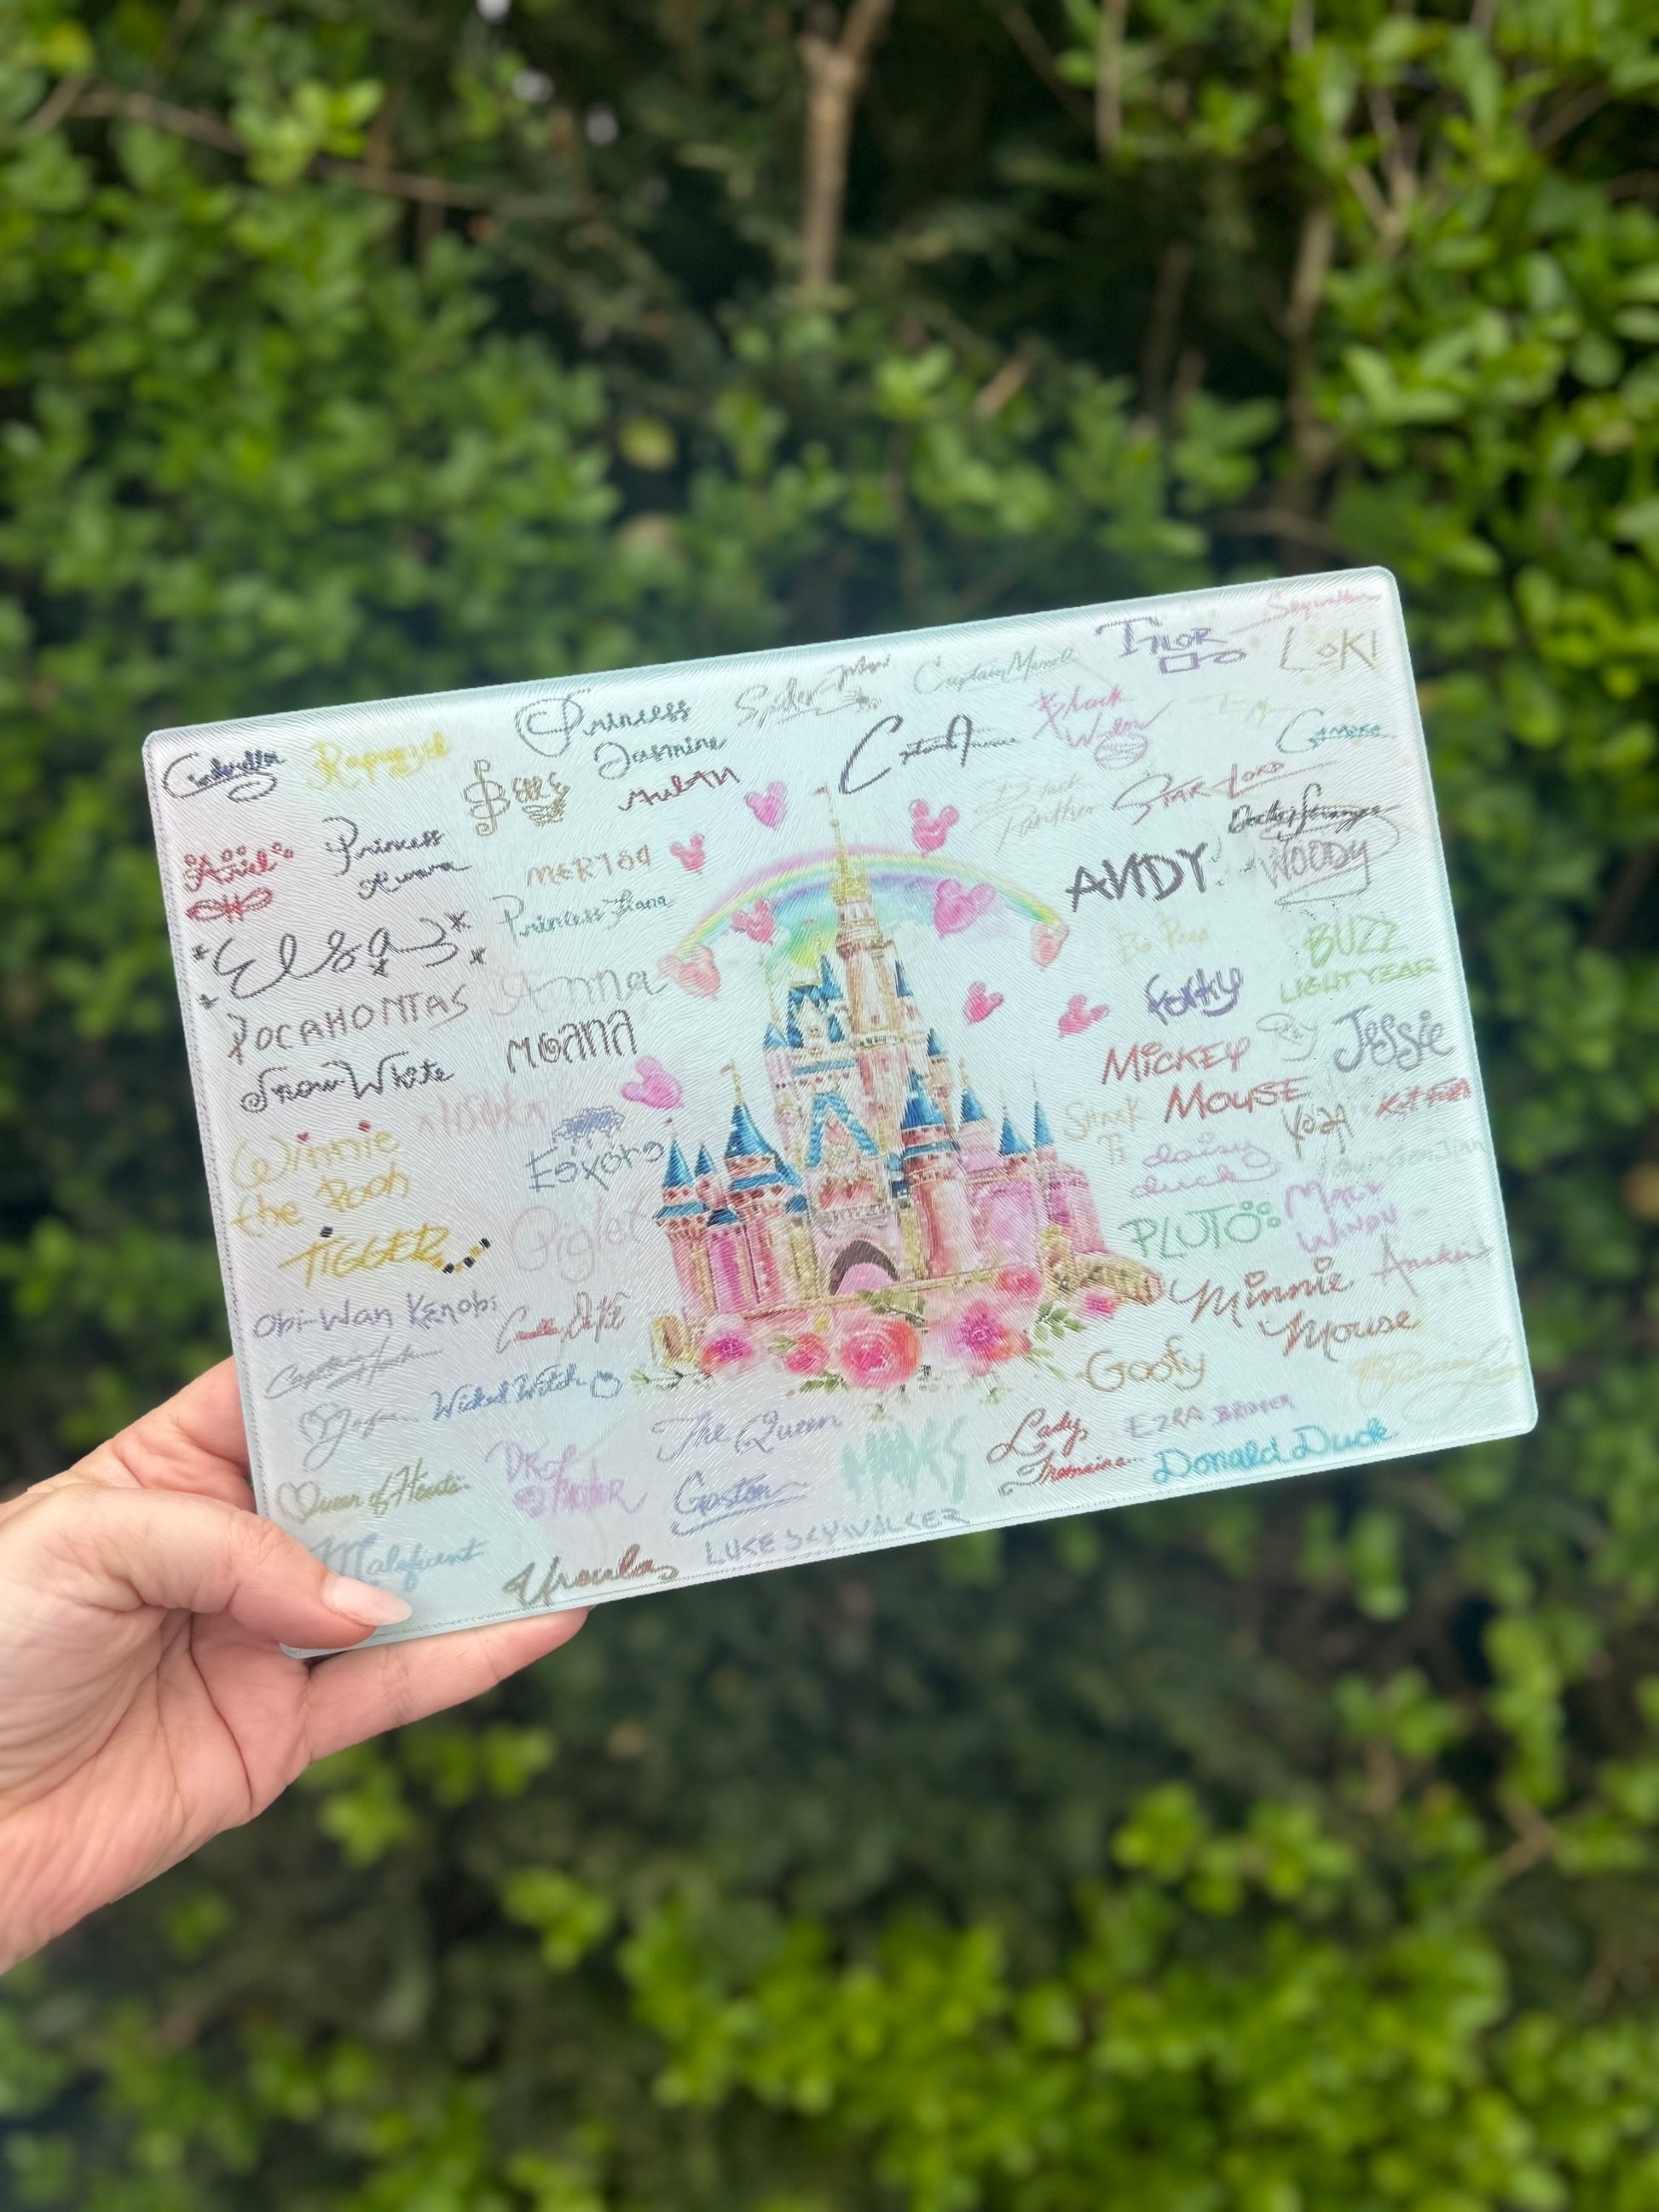 Cinderella
Rapunzel
Princess
Jasmine
Spider Man
Captain Marvel
THOR
Skywalker
LOKI
Belle
MULAN
Black
Widow
Gamora
Ariel
Princess
Aurora
MERIDA
Black
Panther
STAR-LORD
Doctor Strange
Elsa
Princess Tiana
ANDY
WOODY
Bo Peep
BUZZ
LIGHTYEAR
POCAHONTAS
Anna
forky
Jessie
Snow White
MOANA
MICKEY
MOUSE
Winnie
the Pooh
Eeyore
SHAAK
TI
YODA
KIT FISTO
daisy
duck
TIGGER
Piglet
PLUTO
MACE
WINDU
Anakin
Minnie
Mouse
Obi-Wan Kenobi
Cruella De Vil
Captain Hook
Wicked Witch
Goofy
Jafar
The Queen
HADES
Lady
Tremaine
EZRA BRIDGER
Donald Duck
Queen of Hearts
DR.
Gaston
Maleficent
Ursula
LUKE SKYWALKER